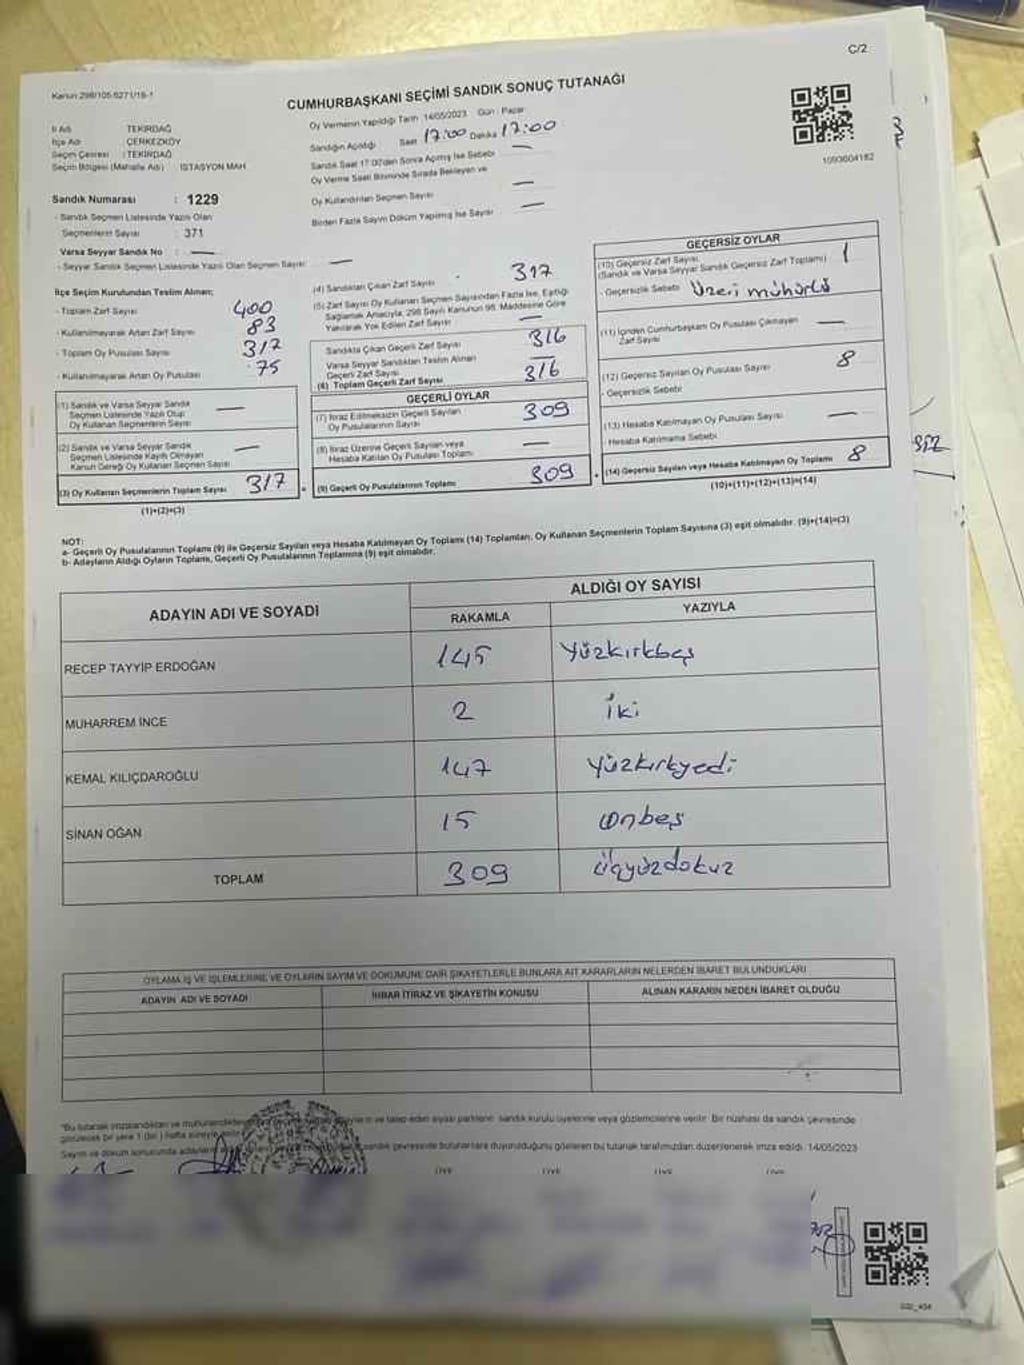 C/2
Kanun 298/105.6271/16-1
CUMHURBAŞKANI SEÇİMİ SANDIK SONUÇ TUTANAĞI
İl Adı TEKİRDAĞ
İlçe Adı ÇERKEZKÖY
Seçim Çevresi : TEKİRDAĞ
Seçim Bölgesi (Mahalle Adı) İSTASYON MAH
Oy Vermenin Yapıldığı Tarih 14/05/2023 Gün : Pazar
Sandığın Açıldığı Saat 17:00 Dakika 17:00
Sandık Saat 17:00'den Sonra Açılmış İse Sebebi —
Oy Verme Saati Bitiminde Sırada Bekleyen ve
Oy Kullandırılan Seçmen Sayısı —
Birden Fazla Sayım Döküm Yapılmış İse Sayısı —
1093604182
Sandık Numarası : 1229
- Sandık Seçmen Listesinde Yazılı Olan
Seçmenlerin Sayısı : 371
Varsa Seyyar Sandık No : —
- Seyyar Sandık Seçmen Listesinde Yazılı Olan Seçmen Sayısı —
İlçe Seçim Kurulundan Teslim Alınan;
- Toplam Zarf Sayısı 400
- Kullanılmayarak Artan Zarf Sayısı 83
- Toplam Oy Pusulası Sayısı 317
- Kullanılmayarak Artan Oy Pusulası 75
(1) Sandık ve Varsa Seyyar Sandık
Seçmen Listesinde Yazılı Olup
Oy Kullanan Seçmenlerin Sayısı —
(2) Sandık ve Varsa Seyyar Sandık
Seçmen Listesinde Kaydı Olmayan
Kanun Gereği Oy Kullanan Seçmen Sayısı —
(3) Oy Kullanan Seçmenlerin Toplam Sayısı 317
(1)+(2)=(3)
(4) Sandıktan Çıkan Zarf Sayısı 317
(5) Zarf Sayısı Oy Kullanan Seçmen Sayısından Fazla İse, Eşitliği
Sağlamak Amacıyla, 298 Sayılı Kanunun 98. Maddesine Göre
Yakılarak Yok Edilen Zarf Sayısı —
Sandıkta Çıkan Geçerli Zarf Sayısı 316
Varsa Seyyar Sandıktan Teslim Alınan
Geçerli Zarf Sayısı —
(6) Toplam Geçerli Zarf Sayısı 316
GEÇERLİ OYLAR
(7) İtiraz Edilmeksizin Geçerli Sayılan
Oy Pusulalarının Sayısı 309
(8) İtiraz Üzerine Geçerli Sayılan veya
Hesaba Katılan Oy Pusulası Toplamı —
(9) Geçerli Oy Pusulalarının Toplamı 309
GEÇERSİZ OYLAR
(10) Geçersiz Zarf Sayısı
(Sandık ve Varsa Seyyar Sandık Geçersiz Zarf Toplamı) 1
- Geçersizlik Sebebi Üzeri mühürlü
(11) İçinden Cumhurbaşkanı Oy Pusulası Çıkmayan
Zarf Sayısı —
(12) Geçersiz Sayılan Oy Pusulası Sayısı 8
- Geçersizlik Sebebi
(13) Hesaba Katılmayan Oy Pusulası Sayısı —
- Hesaba Katılmama Sebebi
(14) Geçersiz Sayılan veya Hesaba Katılmayan Oy Toplamı 8
(10)+(11)+(12)+(13)=(14)
NOT:
a- Geçerli Oy Pusulalarının Toplamı (9) ile Geçersiz Sayılan veya Hesaba Katılmayan Oy Toplamı (14) Toplamları, Oy Kullanan Seçmenlerin Toplam Sayısına (3) eşit olmalıdır. (9)+(14)=(3)
b- Adayların Aldığı Oyların Toplamı, Geçerli Oy Pusulalarının Toplamına (9) eşit olmalıdır.
ADAYIN ADI VE SOYADI ALDIĞI OY SAYISI
RAKAMLA YAZIYLA
RECEP TAYYİP ERDOĞAN 145 Yüzkırkbeş
MUHARREM İNCE 2 iki
KEMAL KILIÇDAROĞLU 147 Yüzkırkyedi
SİNAN OĞAN 15 onbeş
TOPLAM 309 üçyüzdokuz
OYLAMA İŞ VE İŞLEMLERİNE VE OYLARIN SAYIM VE DÖKÜMÜNE DAİR ŞİKAYETLERLE BUNLARA AİT KARARLARIN NELERDEN İBARET BULUNDUKLARI
ADAYIN ADI VE SOYADI İHBAR İTİRAZ VE ŞİKAYETİN KONUSU ALINAN KARARIN NEDEN İBARET OLDUĞU
"Bu tutanak imzalandıktan ve mühürlendikten ve talep eden siyasi partilerin sandık kurulu üyelerine veya gözlemcilerine verilir. Bir nüshası da sandık çevresinde
görülecek bir yere 1 (bir) hafta süreyle
Sayım ve döküm sonucunda adayların sandık çevresinde bulunanlara duyurulduğunu gösteren bu tutanak tarafımızdan düzenlenerek imza edildi. 14/05/2023
ÜYE ÜYE ÜYE ÜYE